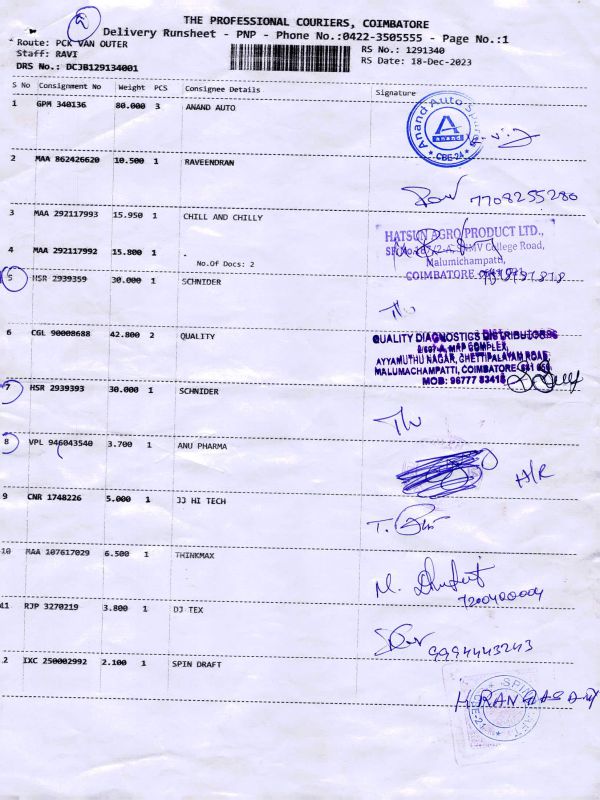 THE PROFESSIONAL COURIERS, COIMBATORE
Delivery Runsheet - PNP - Phone No.:0422-3505555 - Page No.:1
Route: PCK VAN OUTER
RS No.: 1291340
Staff: RAVI
RS Date: 18-Dec-2023
DRS No.: DCJB129134001
S No Consignment No Weight PCS Consignee Details Signature
1 GPM 340136 80.000 3 ANAND AUTO
Anand Auto
A
anand
CBE-24
2 MAA 862426620 10.500 1 RAVEENDRAN
7708255280
3 MAA 292117993 15.950 1 CHILL AND CHILLY
HATSUN AGRO PRODUCT LTD.,
College Road,
Malumichampatti,
COIMBATORE
4 MAA 292117992 15.800 1 .
No.Of Docs: 2
5 HSR 2939359 30.000 1 SCHNIDER
6 CGL 90008688 42.800 2 QUALITY
QUALITY DIAGNOSTICS DISTRIBUTORS
AYYAMUTHU NAGAR, CHETTIPALAYAM ROAD
MALUMACHAMPATTI, COIMBATORE
MOB: 96777 83418
7 HSR 2939393 30.000 1 SCHNIDER
8 VPL 946043540 3.700 1 ANU PHARMA
9 CNR 1748226 5.000 1 JJ HI TECH
10 MAA 107617029 6.500 1 THINKMAX
11 RJP 3270219 3.800 1 DJ TEX
9994443243
12 IXC 250002992 2.100 1 SPIN DRAFT